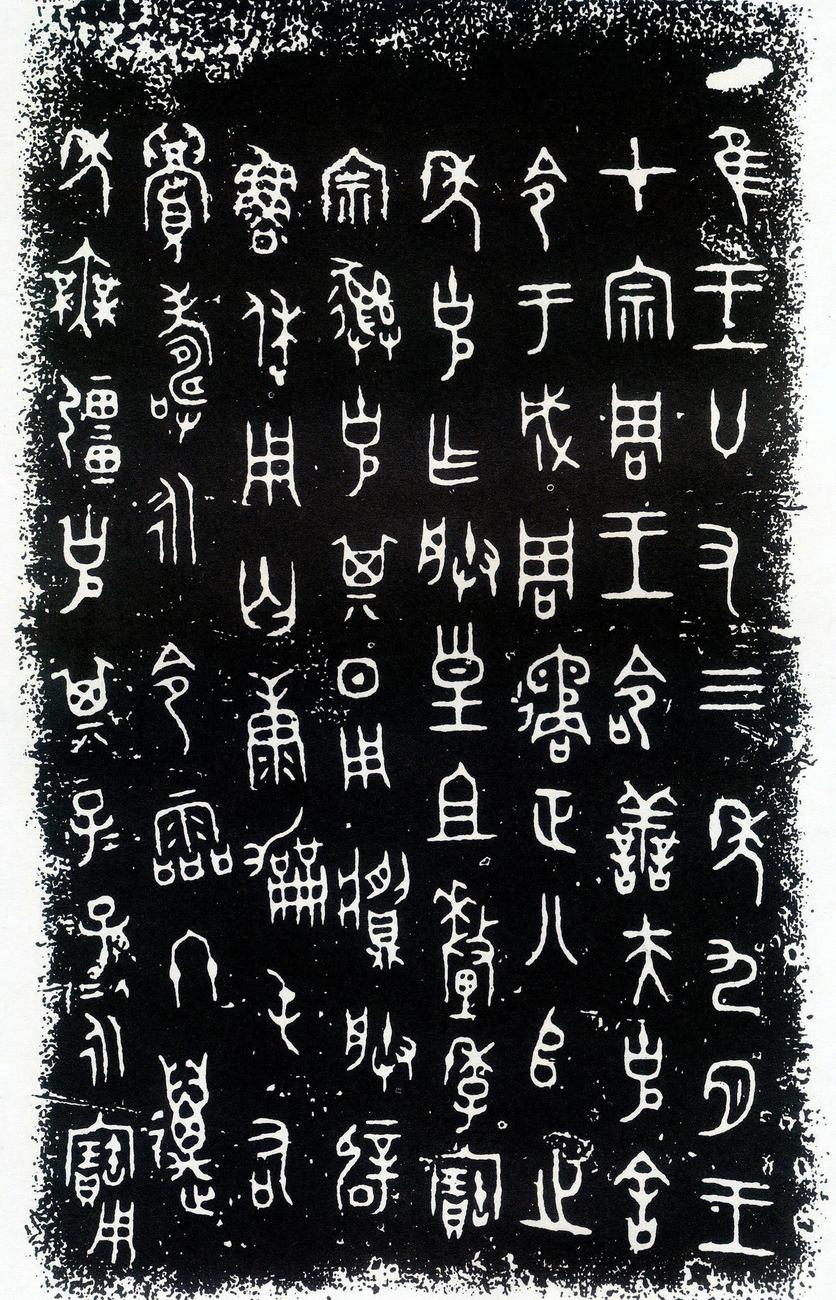 隹王廿又三年九月王
才宗周王命善夫克舍
令于成周遹正八𠂤之
年克乍朕皇且釐季寶
宗彝克其日用䵼朕辟
魯休用匄康屯右
眉壽永令霝冬邁
年無疆克其子=孫=永寶用